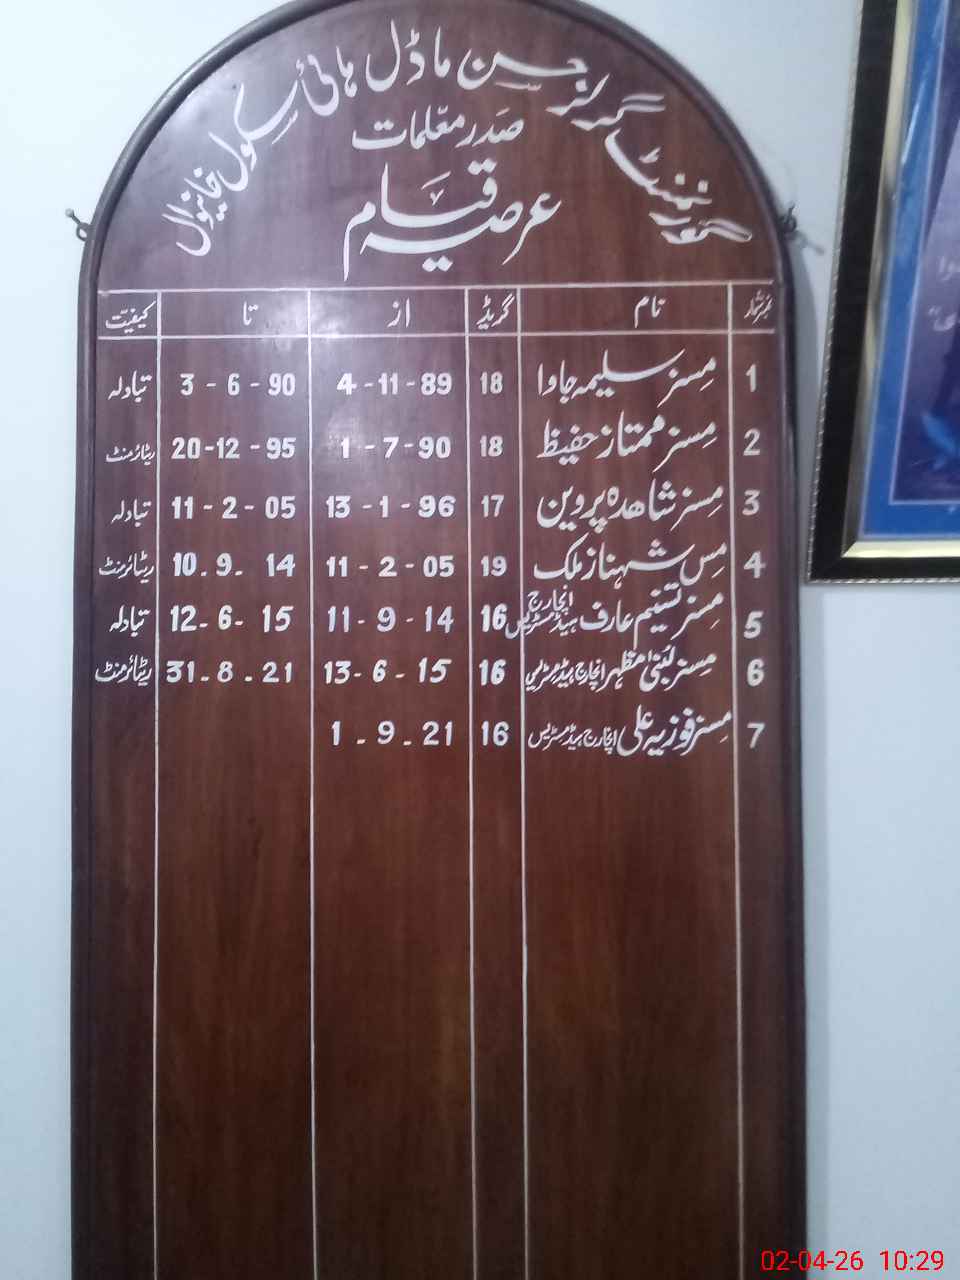 گورنمنٹ گرلز حسن ماڈل ہائی سکول خانیوال
صدر معلمات
عرصہ قیام
نمبر شمار نام گریڈ از تا کیفیّت
1 مسز سلیمہ جاوا 18 4-11-89 3-6-90 تبادلہ
2 مسز ممتاز حفیظ 18 1-7-90 20-12-95 ریٹائرمنٹ
3 مسز شاھدہ پروین 17 13-1-96 11-2-05 تبادلہ
4 مس شہناز ملک 19 11-2-05 10.9.14 ریٹائرمنٹ
5 مسز تسنیم عارف انچارج ہیڈمسٹریس 16 11-9-14 12-6-15 تبادلہ
6 مسز لبنیٰ مظہر انچارج ہیڈمسٹریس 16 13-6-15 31.8.21 ریٹائرمنٹ
7 مسز فوزیہ علی انچارج ہیڈمسٹریس 16 1.9.21
02-04-26 10:29